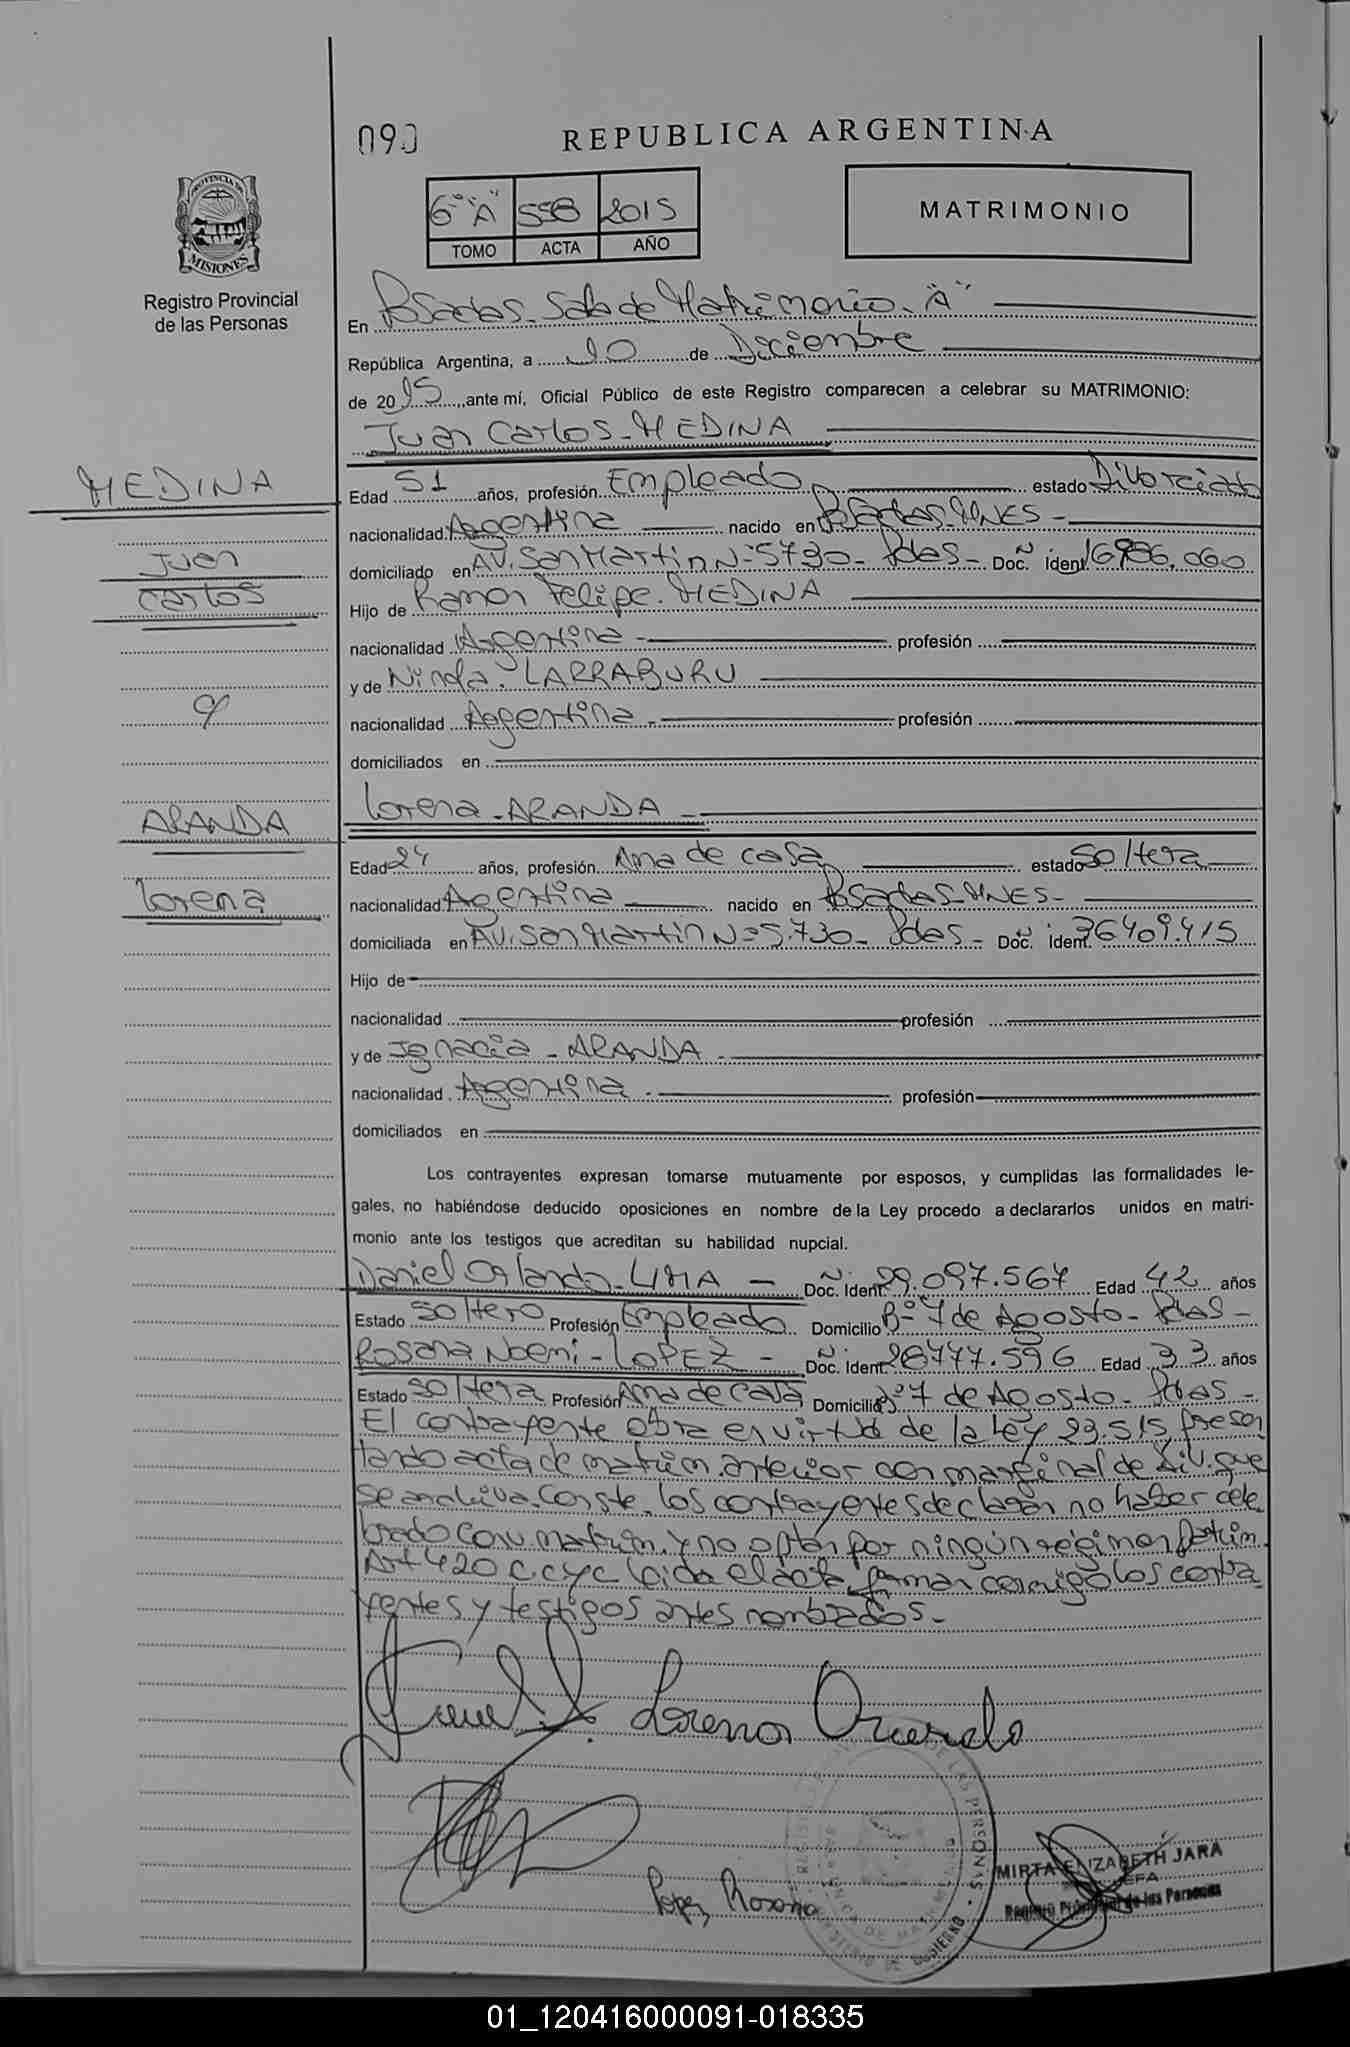 090
REPUBLICA ARGENTINA
6° "A" 558 2015
TOMO ACTA AÑO
MATRIMONIO
PROVINCIA DE
MISIONES
Registro Provincial
de las Personas
En Posadas - Sala de Matrimonio - "A"
República Argentina, a 10 de Diciembre
de 2015, ante mí, Oficial Público de este Registro comparecen a celebrar su MATRIMONIO:
Juan Carlos - MEDINA
MEDINA
Juan
Carlos
Edad 51 años, profesión Empleado estado Divorciado
nacionalidad Argentina nacido en Posadas - MNES -
domiciliado en AV. San Martin N= 5730 - Pdas - Doc. Ident 16986.060
Hijo de Ramon Felipe - MEDINA
nacionalidad Argentina - profesión
y de Ninfa - LARRABURU
nacionalidad Argentina - profesión
domiciliados en
Lorena - ARANDA -
ARANDA
Lorena
Edad 24 años, profesión Ama de casa estado Soltera
nacionalidad Argentina nacido en Posadas - MNES -
domiciliada en AV. San Martin N= 5.730 - Pdas - Doc. Ident. 36409.415
Hijo de
nacionalidad profesión
y de Ignacia - ARANDA -
nacionalidad Argentina - profesión
domiciliados en
Los contrayentes expresan tomarse mutuamente por esposos, y cumplidas las formalidades le-
gales, no habiéndose deducido oposiciones en nombre de la Ley procedo a declararlos unidos en matri-
monio ante los testigos que acreditan su habilidad nupcial.
Daniel Orlando - LIMA - Doc. Ident 29.097.567 Edad 42 años
Estado Soltero Profesión Empleado Domicilio B° 7 de Agosto - Pdas -
Rosana Noemi - LOPEZ - Doc. Ident 28777.596 Edad 33 años
Estado Soltera Profesión Ama de casa Domicilio B° 7 de Agosto - Pdas -
El contrayente obra en virtud de la Ley 23.515 presen
tando acta de matrim. anterior con marginal de Div. que
se archiva. Conste. los contrayentes declaran no haber cele
brado conv. matrim. y no optan por ningún régimen patrim.
Art 420 C C y C leida el acta firman conmigo los contra
yentes y testigos antes nombrados -
Lorena
Lopez Rosana
DE LAS PERSONAS
DE GOBIERNO
MIRTA ELIZABETH JARA
JEFA
Registro Provincial de las Personas
01_120416000091-018335